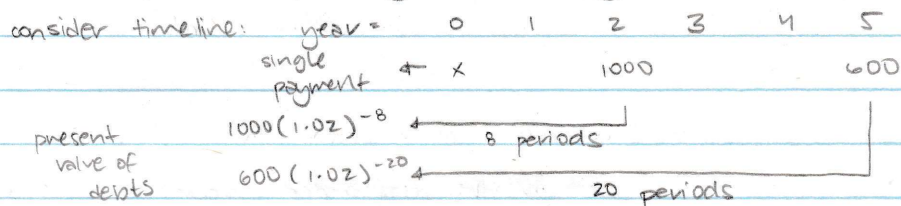 consider timeline: year = 0 1 2 3 4 5
single payment ← x 1000 600
present value of debts
1000(1.02)^-8 8 periods
600(1.02)^-20 20 periods